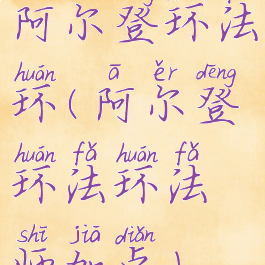 阿尔登环法
huán ā ěr dēng
环(阿尔登
huán fǎ huán fǎ
环法环法
shī jiā diǎn
师加点)